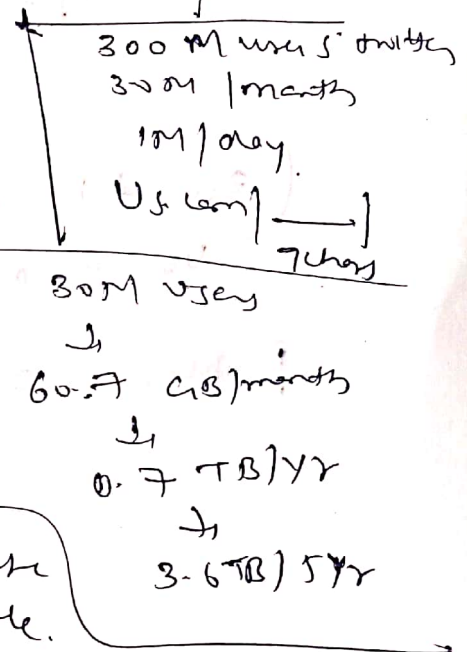 300 M users twitter
30M / month
1M / day.
Us.com/ ]
7chars
30M users
↓
60.7 GB/month
↓
0.7 TB/yr
↓
3.6TB / 5yr